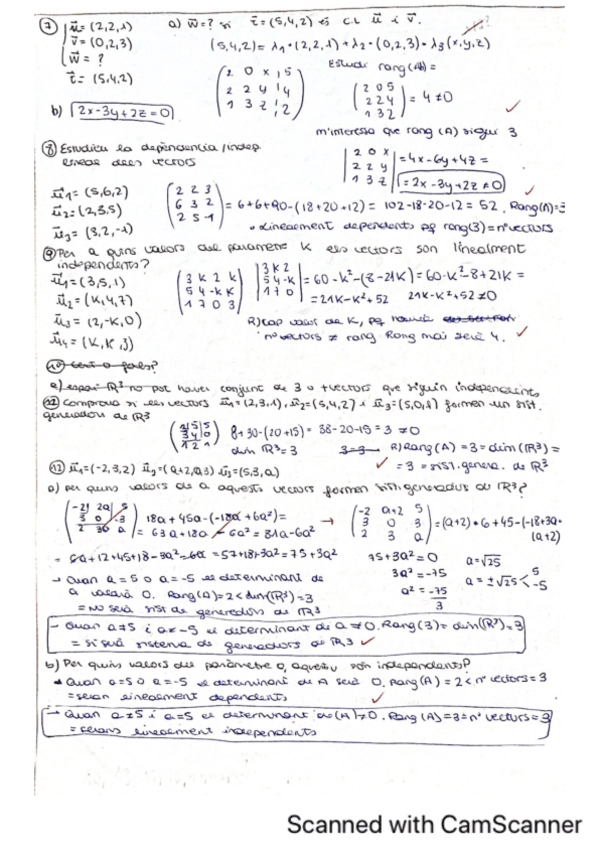 ⑦ u⃗ = (2,2,1) a) w⃗ = ? si t⃗ = (5,4,2) és C.L u⃗ i v⃗.
v⃗ = (0,2,3) (5,4,2) = λ₁·(2,2,1) + λ₂·(0,2,3) + λ₃(x,y,z)
w⃗ = ?
t⃗ = (5,4,2)
Estudi rang(A) =
2 0 x | 5
2 2 y | 4
1 3 z | 2
2 0 5
2 2 4
1 3 2
= 4 ≠ 0
b) 2x-3y+2z=0
m'interessa que rang (A) sigui 3
⑧ Estudieu la dependència/indep
lineal dels vectors
2 0 x
2 2 y
1 3 z
= 4x-6y+4z =
= 2x-3y+2z ≠ 0
u⃗₁ = (5,6,2)
u⃗₂ = (2,3,5)
u⃗₃ = (3,2,-1)
2 2 3
6 3 2
2 5 -1
= 6+6+90-(18+20+12) = 102-18-20-12 = 52. Rang(A)=3
• Linealment dependents pq rang(3) = nº vectors
⑨ Per a quins valors del paràmetre K els vectors són linealment
independents?
u⃗₁ = (3,5,1)
u⃗₂ = (K,4,7)
u⃗₃ = (2,-K,0)
u⃗₄ = (K,K,3)
3 K 2 K
5 4 -K K
1 7 0 3
3 K 2
5 4 -K
1 7 0
= 60-K²-(8-21K) = 60-K²-8+21K =
= 21K-K²+52 21K-K²+52 ≠ 0
R) Cap valor de K, pq
nº vectors ≠ rang. Rang mai serà 4.
⑩ Cert o fals?
a) espai R³ no pot haver conjunt de 3 o + vectors que siguin independents
Comprova si els vectors u⃗₁ = (2,3,1), u⃗₂ = (5,4,2) i u⃗₃ = (5,0,1) formen un sist.
generador de R³
8+30-(20+15) = 38-20-15 = 3 ≠ 0
dim R³ = 3
R) Rang (A) = 3 = dim (R³) =
= 3 = sist. genera. de R³
⑫ u⃗₁ = (-2,3,2) u⃗₂ = (a+2,0,3) u⃗₃ = (5,3,a)
a) Per quins valors de a aquests vectors formen sist. generadors de R³?
18a+45a-(-18a+6a²) =
= 63a+18a-6a² = 81a-6a²
-2 a+2 5
3 0 3
2 3 a
= (a+2)·6+45-(-18+3a·
(a+2)
= 6a+12+45+18-3a²-6a = 57+18+3a² = 75+3a²
75+3a² = 0
3a² = -75
a² = -75/3
a = √25
a = ±√25 < 5 -5
→ Quan a = 5 o a = -5 el determinant de
a valdrà 0. Rang(A) = 2 < dim(R³) = 3
= No serà sist. de generadors de R³
- Quan a≠5 i a≠-5 el determinant de a ≠ 0. Rang(3) = dim(R³) = 3
= sí serà sistema de generadors de R³
b) Per quins valors del paràmetre a, aquests són independents?
• Quan a=5 o a=-5 el determinant de A serà 0. Rang(A) = 2 < nº vectors = 3
= seran linealment dependents
→ Quan a≠5 i a=5 el determinant de (A) ≠ 0. Rang (A) = 3 = nº vectors = 3
= seran linealment independents
Scanned with CamScanner